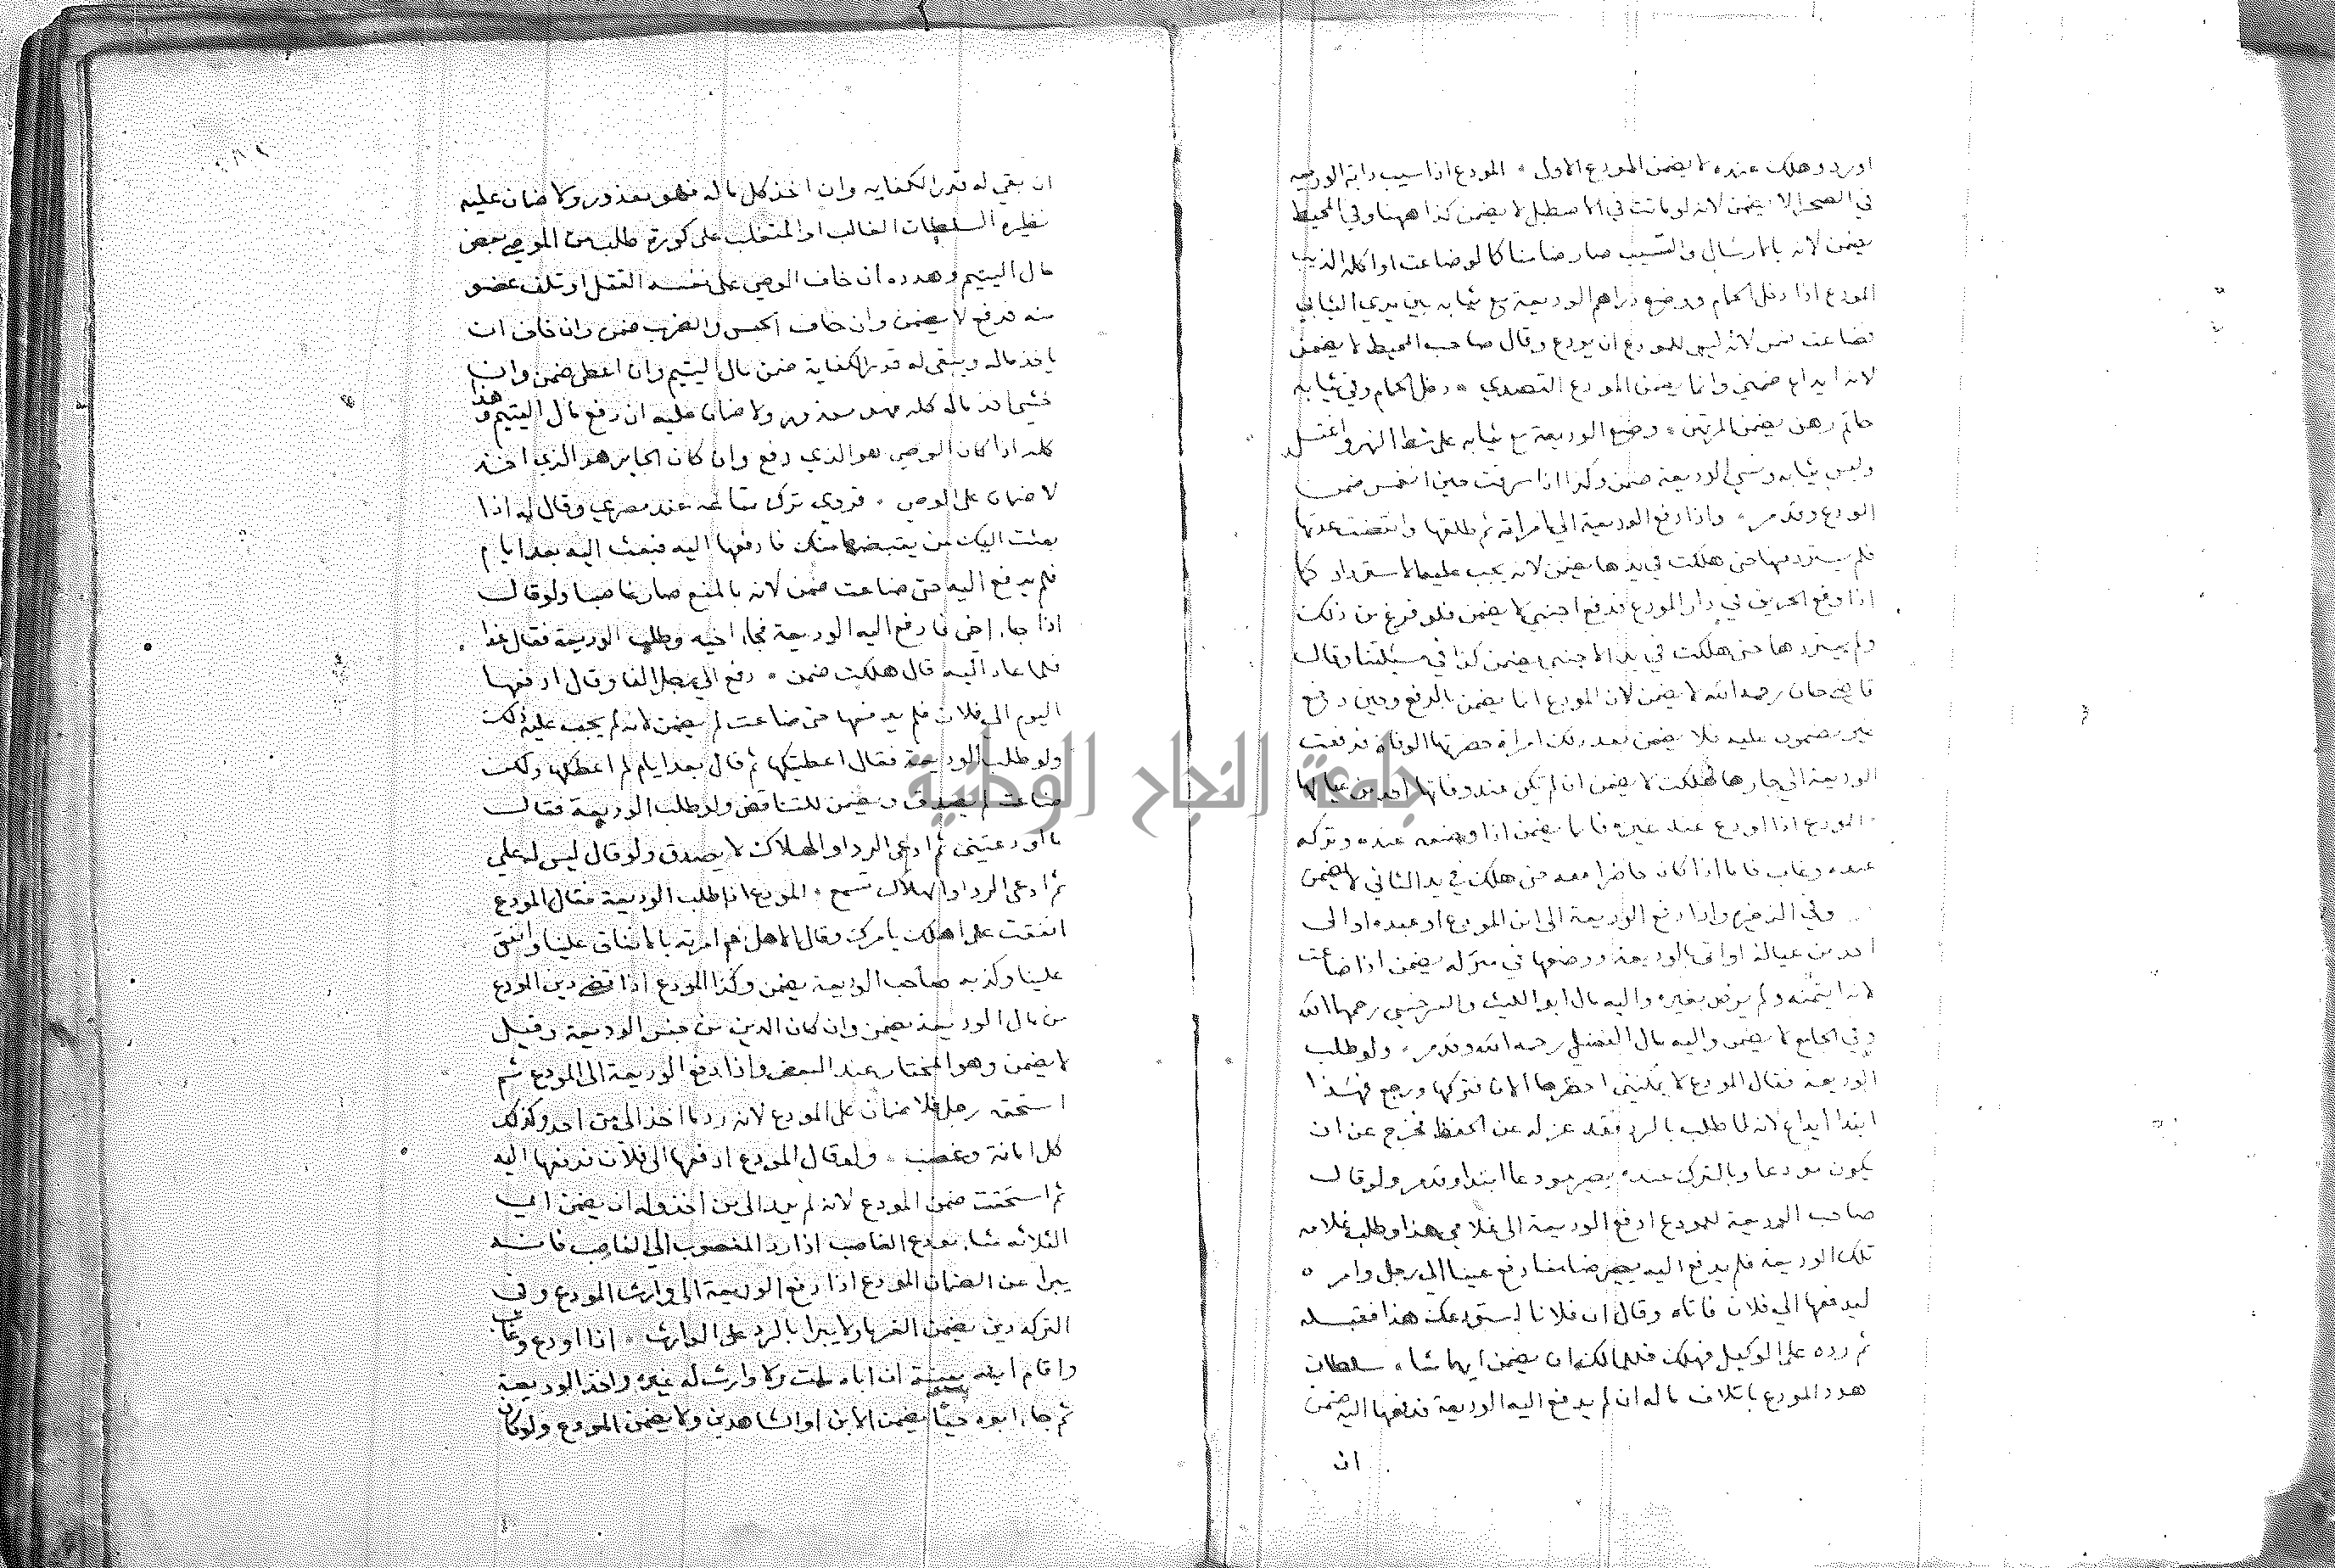 اورد وهلك عنده لا يضمن المودع الاول ۰ المودع اذا سيب دابة الوديعه
في الصحرا لا يضمن لانه لو ماتت في الاصطبل لا يضمن كذا ههنا وفي المحيط
يضمن لانه بالارسال والتسيب صار ضامنا كما لو ضاعت او اكله الذيب
المودع اذا دخل الحمام ووضع دراهم الوديعة مع ثيابه بين يدي الثيابي
فضاعت ضمن لانه ليس للمودع ان يودع وقال صاحب المحيط لا يضمن
لانه ايداع ضمني وانما يضمن المودع القصدي ۰ دخل الحمام وفي ثيابه
خاتم رهن يضمن المرتهن ۰ وضع الوديعة مع ثيابه على شط النهر واغتسل
ولبس ثيابه ونسي الوديعة ضمن وكذا اذا سرقت حين انغمس ضمن
المودع وقد مر ۰ واذا دفع الوديعة الي امراته ثم طلقها وانقضت عدتها
فلم يستردها حتى هلكت في يدها يضمن لانه يجب عليه الاسترداد كما
اذا وقع الحريق في دار المودع فدفع اجنبي لا يضمن فلو فرغ من ذلك
ولم يستردها حتى هلكت في يد الاجنبي يضمن كذا في مسئلتنا وقال
قاضي خان رحمه الله لا يضمن لان المودع انما يضمن بالدفع وحين دفع
غير مضمون عليه فلا يضمن بعد ذلك امراة حضرتها الوفاة فدفعت
الوديعة الي جارها فهلكت لا يضمن ان لم يكن عند وفاتها احد من عيالها
المودع اذا اودع عند غيره فانما يضمن اذا وضعه عنده وتركه
عنده وغاب فاما اذا كان حاضرا معه حتى هلك في يد الثاني لا يضمن
وفي الذخيره واذا دفع الوديعة الى ابن المودع او عبده او الى
احد من عياله او اتى بالوديعة ووضعها في منزله يضمن اذا ضاعت
لانه ائتمنه ولم يرض بغيره واليه مال ابو الليث والسرخسي رحمهما الله
وفي الجامع لا يضمن واليه مال الفضلي رحمه الله وقد مر ۰ ولو طلب
الوديعة فقال المودع لا يمكنني احضرها الان فتركها ورجع فهذا
ابتدا ايداع لانه لما طلب بالرد فقد عزله عن الحفظ فخرج عن ان
يكون مودعا وبالترك عنده يصير مودعا ابتدا وقد مر ولو قال
صاحب الوديعة للمودع ادفع الوديعة الى غلامي هذا وطلب غلامه
تلك الوديعة فلم يدفع اليه يصير ضامنا دفع عينا الي رجل وامره
ليدفعها الي فلان فاتاه وقال ان فلانا استودعك هذا فقبله
ثم رده على الوكيل فهلك فللمالك ان يضمن ايهما شاء سلطان
هدد المودع باتلاف ماله ان لم يدفع اليه الوديعة فدفعها اليه ضمن
ان
ان بقي له قدر الكفايه وان اخذ كل ماله فهو معذور ولا ضمان عليه
نظيره السلطان الغالب او المتغلب على كورة طلب من الموصي بعض
مال اليتيم وهدده ان خاف الوصي على نفسه القتل او تلف عضو
منه فدفع لا يضمن وان خاف الحبس والضرب ضمن وان خاف ان
ياخذ ماله ويبقي له قدر الكفاية ضمن مال اليتيم وان اعطى ضمن وان
خشي اخذ ماله كله فهو معذور ولا ضمان عليه ان دفع مال اليتيم وهذا
كله اذا كان الوصي هو الذي دفع وان كان الجاير هو الذي اخذ
لا ضمان على الوصي ۰ قروي ترك متاعه عند مصري وقال له اذا
بعثت اليك من يقبضها منك فادفعها اليه فبعث اليه بعد ايام
فلم يدفع اليه حتى ضاعت ضمن لانه بالمنع صار غاصبا ولو قال
اذا جاء اخي فادفع اليه الوديعة فجاء اخيه وطلب الوديعة فقال غدا
فلما عاد اليه قال هلكت ضمن ۰ دفع الي رجل الفا وقال ادفعها
اليوم الي فلان فلم يدفعها حتى ضاعت لم يضمن لانه لم يجب عليه ذلك
ولو طلب الوديعة فقال اعطيتكها ثم قال بعد ايام لم اعطكها ولكن
ضاعت لم يصدق ويضمن للتناقض ولو طلب الوديعة فقال
ما اودعتني ثم ادعى الرد او الهلاك لا يصدق ولو قال ليس له علي
ثم ادعى الرد او الهلاك تسمع ۰ المودع اذا طلب الوديعة فقال المودع
انفقت على اهلك بامرك وقال الاهل نعم امرته بالانفاق علينا وانفق
علينا وكذبه صاحب الوديعة يضمن وكذا المودع اذا قضي دين المودع
من مال الوديعة يضمن وان كان الدين من جنس الوديعة وقيل
لا يضمن وهو المختار عند البعض واذا دفع الوديعة الى المودع ثم
استحقه رجل فلا ضمان على المودع لانه رد ما اخذ الى من احد وكذلك
كل امانة وغصب ۰ ولو قال المودع ادفعها الى فلان فدفعها اليه
ثم استحقت ضمن المودع لانه لم يرد الى من اخذ وله ان يضمن اي
الثلاثه شاء مودع الغاصب اذا رد المغصوب الى الغاصب فانه
يبرا عن الضمان المودع اذا دفع الوديعة الى وارث المودع وفي
التركه دين يضمن الغرما ولا يبرا بالرد على الوارث ۰ اذا اودع وغاب
واقام ابنه بينة ان اباه مات ولا وارث له غيره واخذ الوديعة
ثم جاء ابوه حيا يضمن الابن او الشاهدين ولا يضمن المودع ولو كان
جامعة النجاح الوطنية